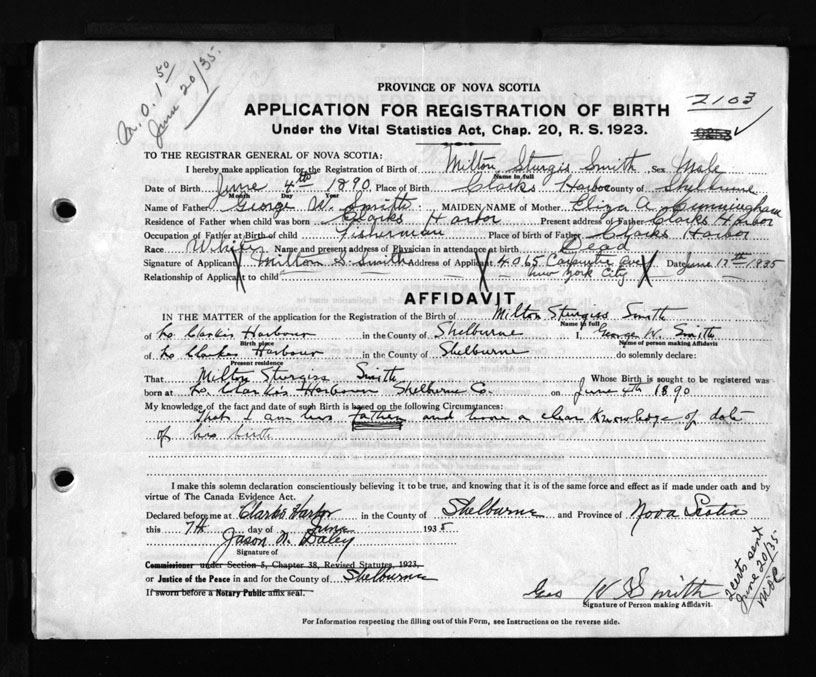 M.O. 1 50
June 20/35
PROVINCE OF NOVA SCOTIA
2103
APPLICATION FOR REGISTRATION OF BIRTH
Under the Vital Statistics Act, Chap. 20, R. S. 1923.
TO THE REGISTRAR GENERAL OF NOVA SCOTIA:
I hereby make application for the Registration of Birth of Milton Sturgis Smith Sex Male
Name in full
Date of Birth June 4th 1890 Place of Birth Clarks Harbor County of Shelburne
Month Day Year
Name of Father George W. Smith MAIDEN NAME of Mother Eliza A. Cunningham
Residence of Father when child was born Clarks Harbor Present address of Father Clarks Harbor
Occupation of Father at Birth of child Fisherman Place of birth of Father Clarks Harbor
Race White Name and present address of Physician in attendance at birth Dead
Signature of Applicant Milton S. Smith Address of Applicant 4065 Ave Date June 13th 1935
Relationship of Applicant to child New York City
AFFIDAVIT
IN THE MATTER of the application for the Registration of the Birth of Milton Sturgiss Smith
Name in full
of Clarkis Harbour in the County of Shelburne I, George W. Smith
Birth place Name of person making Affidavit
of Clarkes Harbour in the County of Shelburne do solemnly declare:
Present residence
That Milton Sturgiss Smith Whose Birth is sought to be registered was
born at Clarkis Harbour Shelburne Co. on June 4th 1890
My knowledge of the fact and date of such Birth is based on the following Circumstances:
That I am his father and have a clear knowledge of date
of his birth
I make this solemn declaration conscientiously believing it to be true, and knowing that it is of the same force and effect as if made under oath and by
virtue of The Canada Evidence Act.
Declared before me at Clarks Harbor in the County of Shelburne and Province of Nova Scotia
this 7th day of June 1935
Jason N. Daley
Signature of
Commissioner under Section 5, Chapter 38, Revised Statutes, 1923,
or Justice of the Peace in and for the County of Shelburne
If sworn before a Notary Public affix seal.
Geo W Smith
Signature of Person making Affidavit.
2 certs sent
June 20/35
For Information respecting the filling out of this Form, see Instructions on the reverse side.